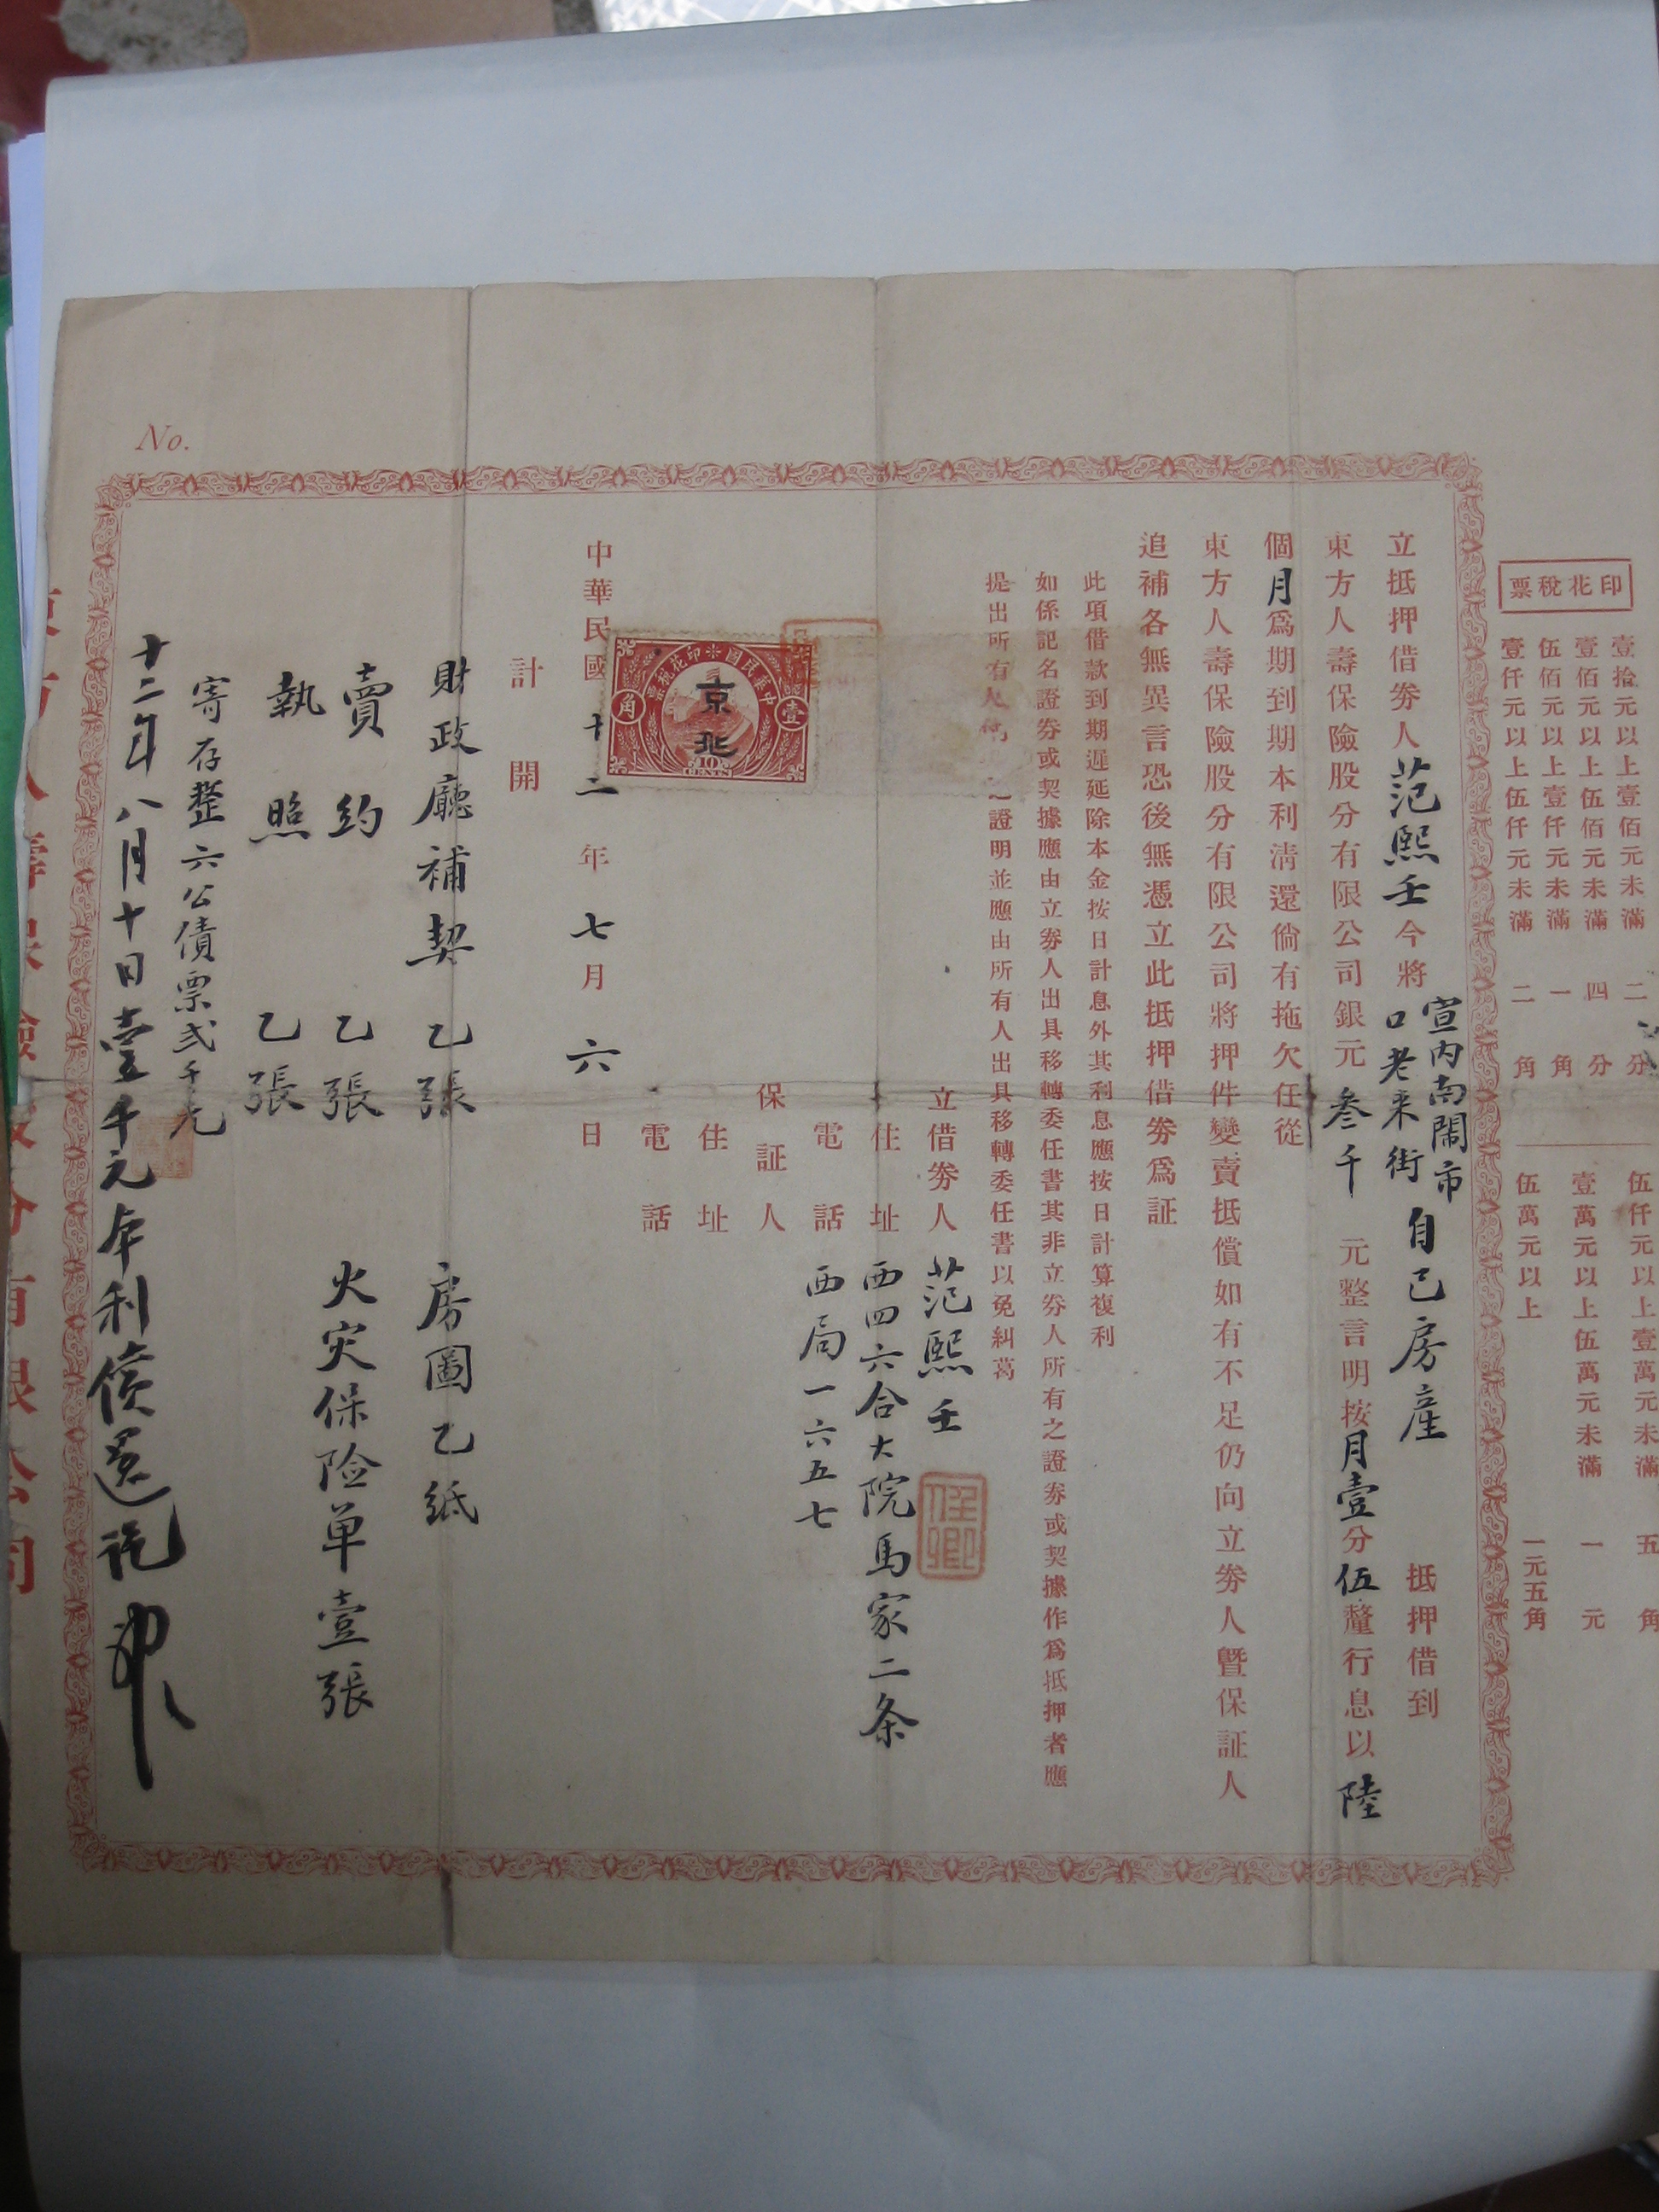 印花稅票
壹拾元以上壹佰元未滿 二分
壹佰元以上伍佰元未滿 四分
伍佰元以上壹仟元未滿 一角
壹仟元以上伍仟元未滿 二角
伍仟元以上壹萬元未滿 五角
壹萬元以上伍萬元未滿 一元
伍萬元以上 一元五角
立抵押借劵人范熙壬今將宣内南鬧市口老来街自己房產抵押借到
東方人壽保險股分有限公司銀元叁千元整言明按月壹分伍釐行息以陸
個月爲期到期本利淸還倘有拖欠任從
東方人壽保險股分有限公司將押件變賣抵償如有不足仍向立劵人暨保証人
追補各無異言恐後無憑立此抵押借劵爲証
此項借款到期遲延除本金按日計息外其利息應按日計算複利
如係記名證券或契據應由立劵人出具移轉委任書其非立券人所有之證券或契據作爲抵押者應
提出所有人之證明並應由所有人出具移轉委任書以免糾葛
立借劵人 范熙壬
任卿
住址 西四六合大院馬家二条
電話 西局一六五七
保証人
住址
電話
中華民國十二年七月六日
中華民國印花稅票
壹角
北京
10
CENTS
計開
財政廳補契 乙張 房圖乙紙
賣約 乙張 火灾保险单壹張
執照 乙張
寄存整六公債票弍千元
十二年八月十日壹千元本利償還訖
No.
東方人壽保險股分有限公司